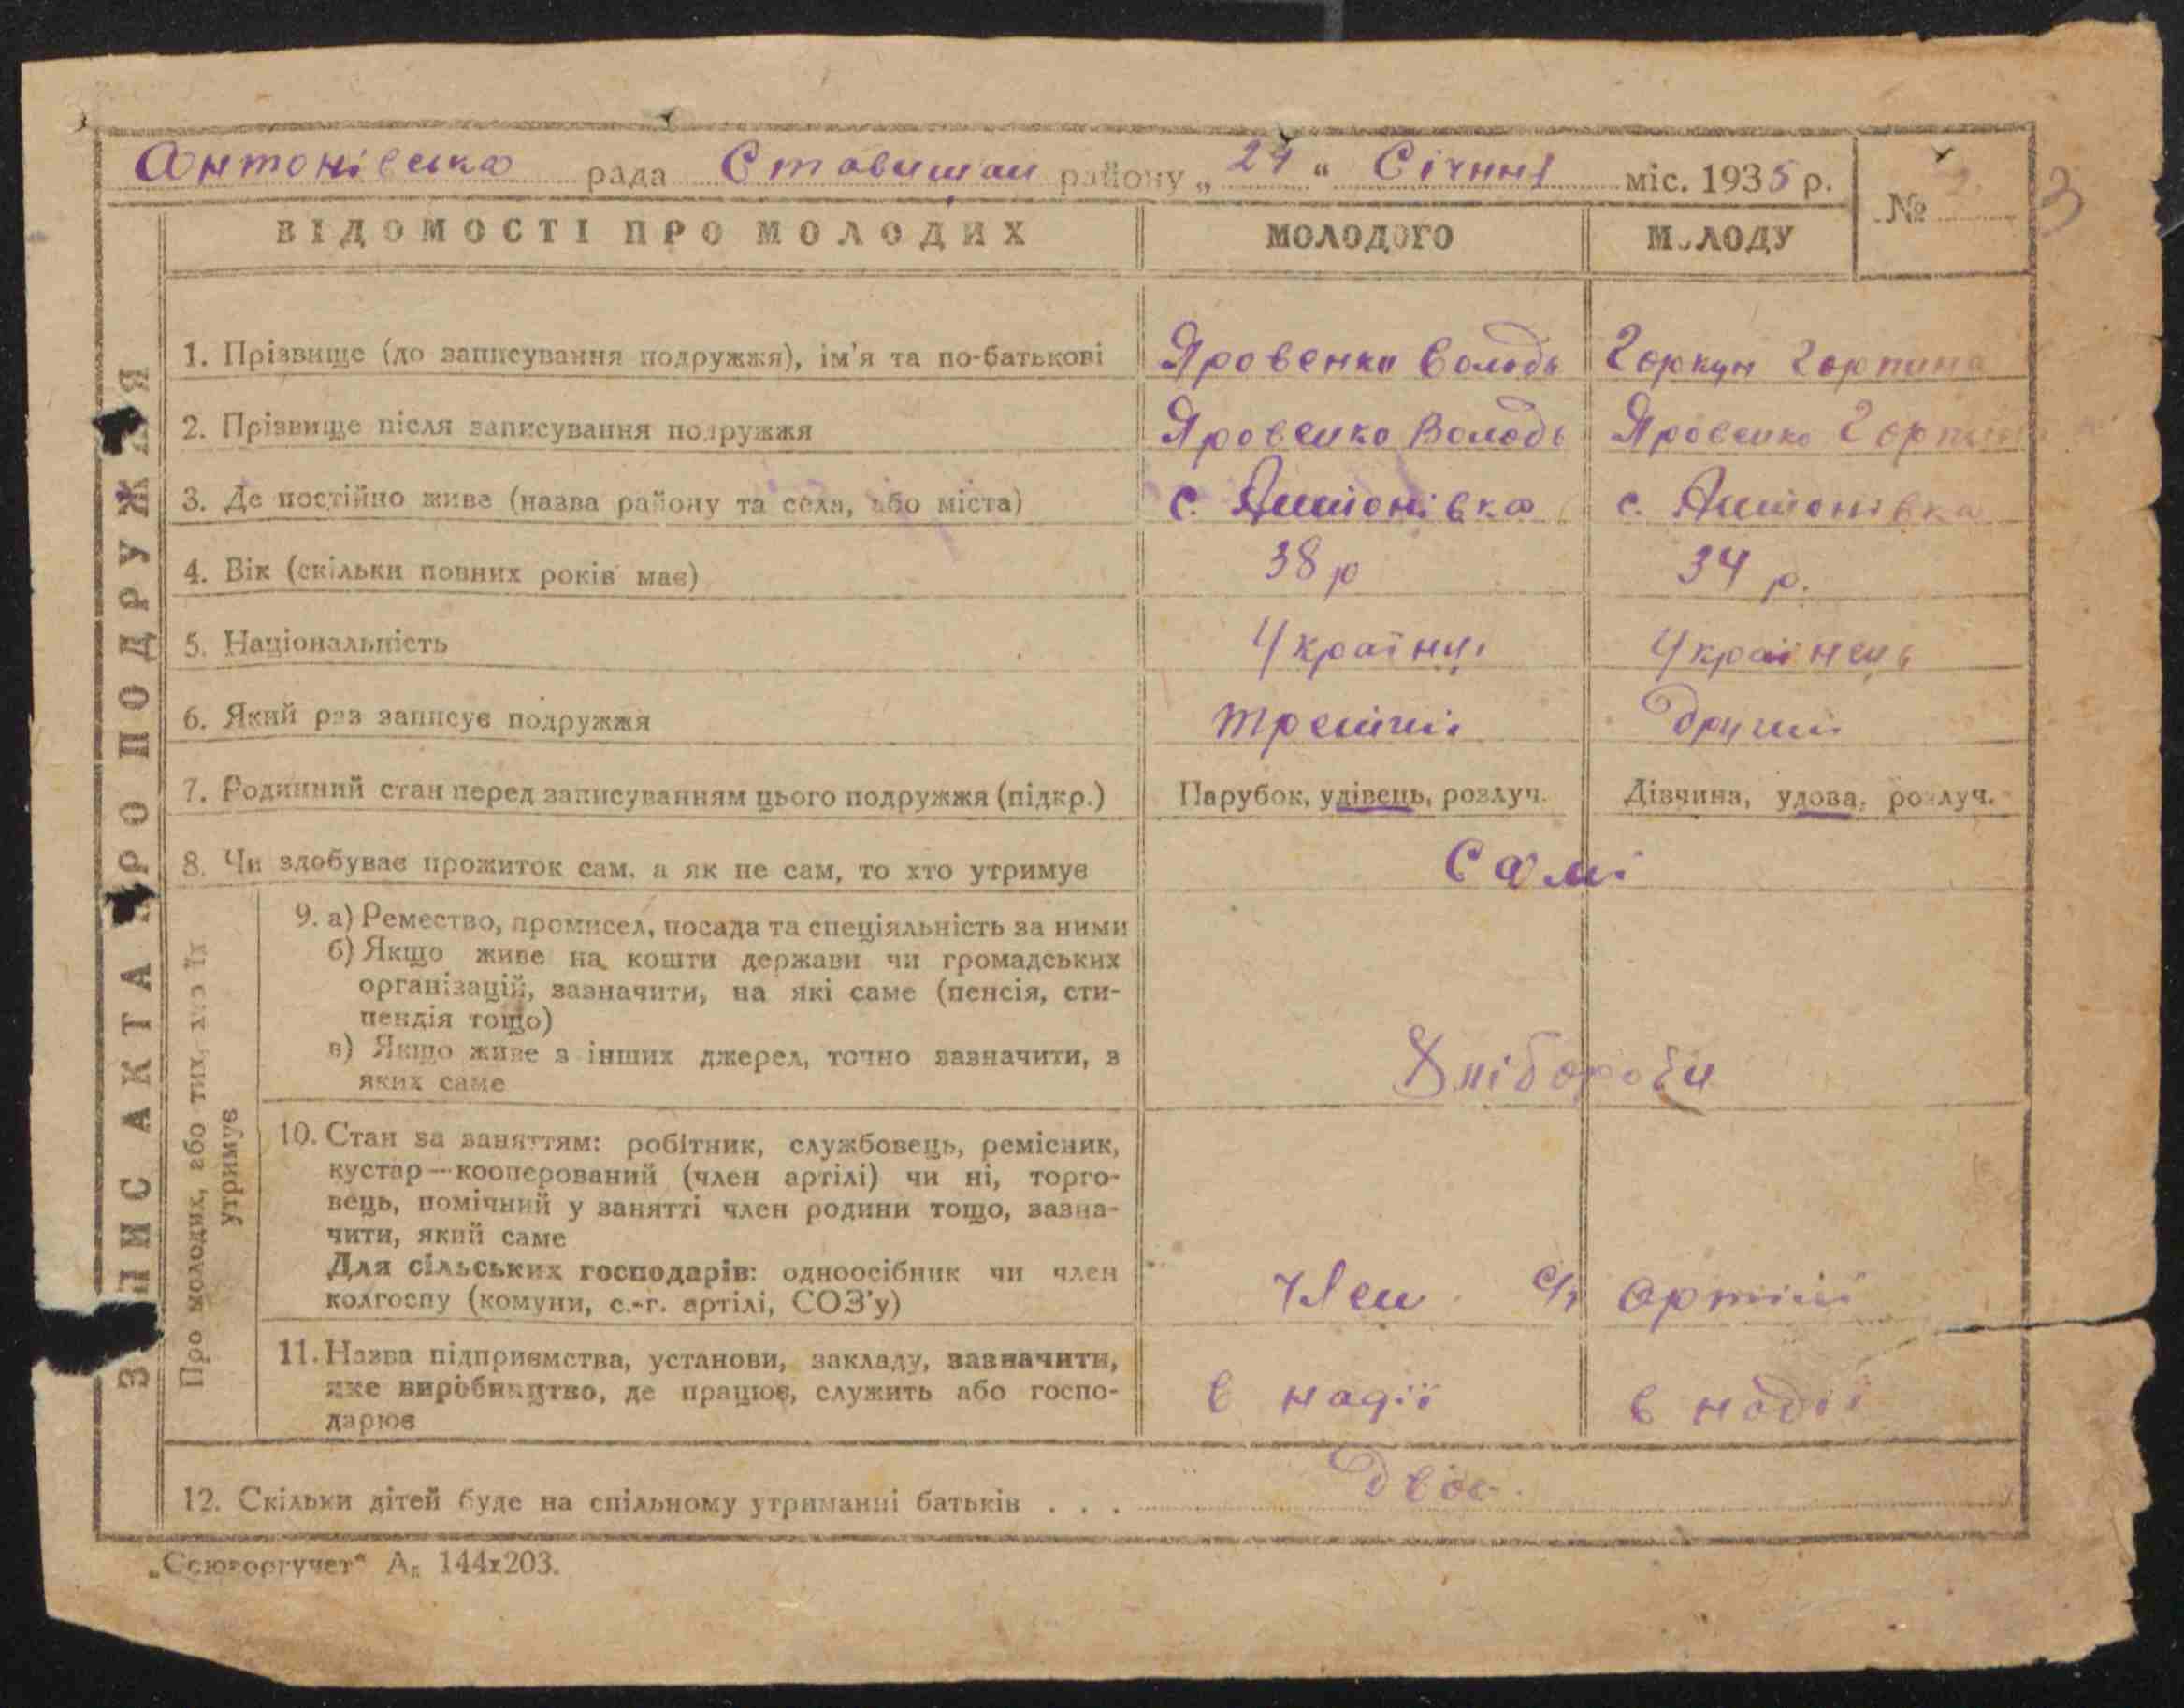 Антонівська рада Ставищан району „ 24 “ Січння міс. 1935 р.
№ 2.
3
ВІДОМОСТІ ПРО МОЛОДИХ МОЛОДОГО МОЛОДУ
ЗАПИС АКТА ПРО ПОДРУЖЖЯ
1. Прізвище (до записування подружжя), ім'я та по-батькові Яровенко Володь Горкун Горпина
2. Прізвище після записування подружжя Яровенко Володь Яровенко Горпина
3. Де постійно живе (назва району та села, або міста) с. Антонівка с. Антонівка
4. Вік (скільки повних років має) 38 р 34 р.
5. Національність Українц. Українець
6. Який раз записує подружжя третій другий
7. Родинний стан перед записуванням цього подружжя (підкр.) Парубок, удівець, розлуч. Дівчина, удова, розлуч.
8. Чи здобуває прожиток сам, а як не сам, то хто утримує Самі
Про молодих, або тих, хто їх
утримує
9. а) Ремество, промисел, посада та спеціяльність за ними
б) Якщо живе на кошти держави чи громадських
організацій, зазначити, на які саме (пенсія, сти-
пендія тощо)
в) Якщо живе з інших джерел, точно зазначити, з
яких саме
Хлібороби
10. Стан за заняттям: робітник, службовець, ремісник,
кустар—кооперований (член артілі) чи ні, торго-
вець, помічний у занятті член родини тощо, зазна-
чити, який саме
Для сільських господарів: одноосібник чи член
колгоспу (комуни, с.-г. артілі, СОЗ'у)
Член с/г артілі
11. Назва підприємства, установи, закладу, зазначити,
яке виробництво, де працює, служить або госпо-
дарює
в надії в надії
12. Скільки дітей буде на спільному утриманні батьків . . . двоє.
„Союзоргучет“ А₅ 144х203.